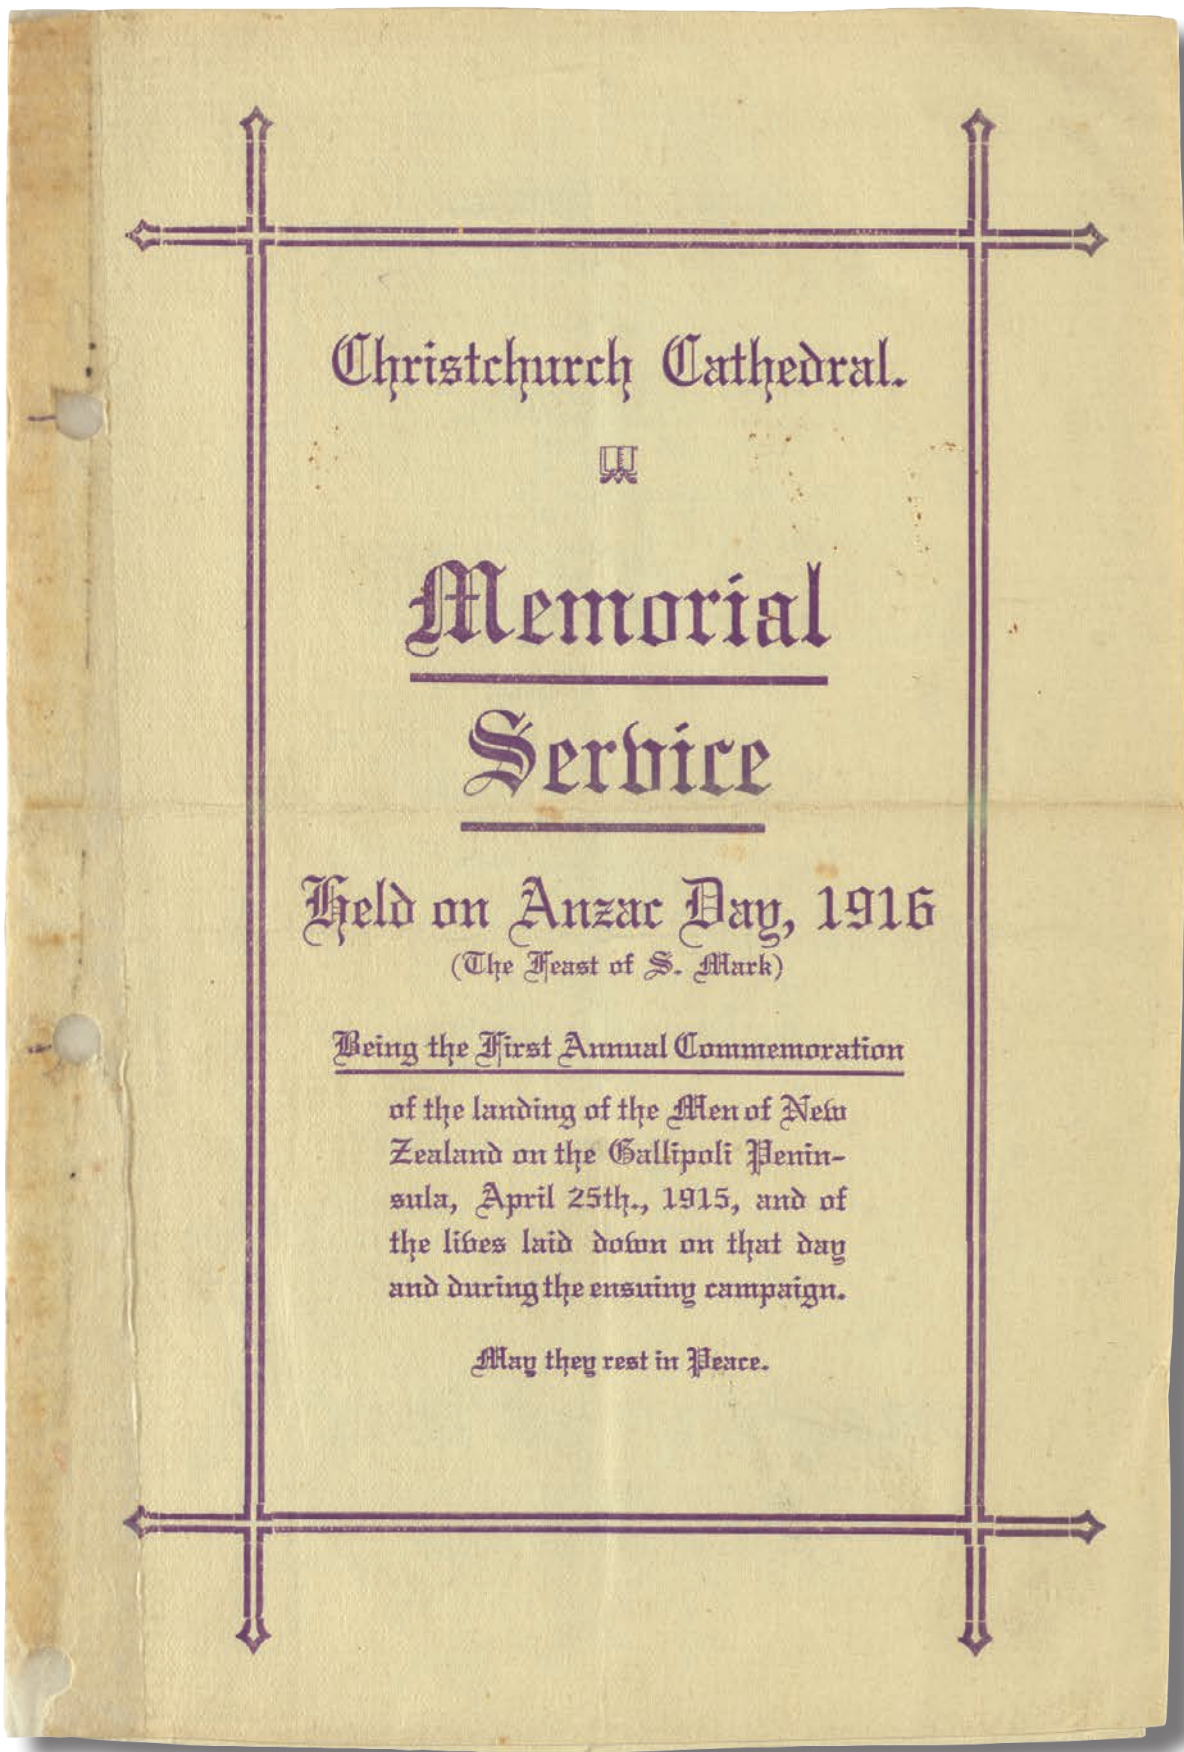 Christchurch Cathedral.
Memorial
Service
Held on Anzac Day, 1916
(The Feast of S. Mark)
Being the First Annual Commemoration
of the landing of the Men of New
Zealand on the Gallipoli Penin-
sula, April 25th., 1915, and of
the lives laid down on that day
and during the ensuing campaign.
May they rest in Peace.